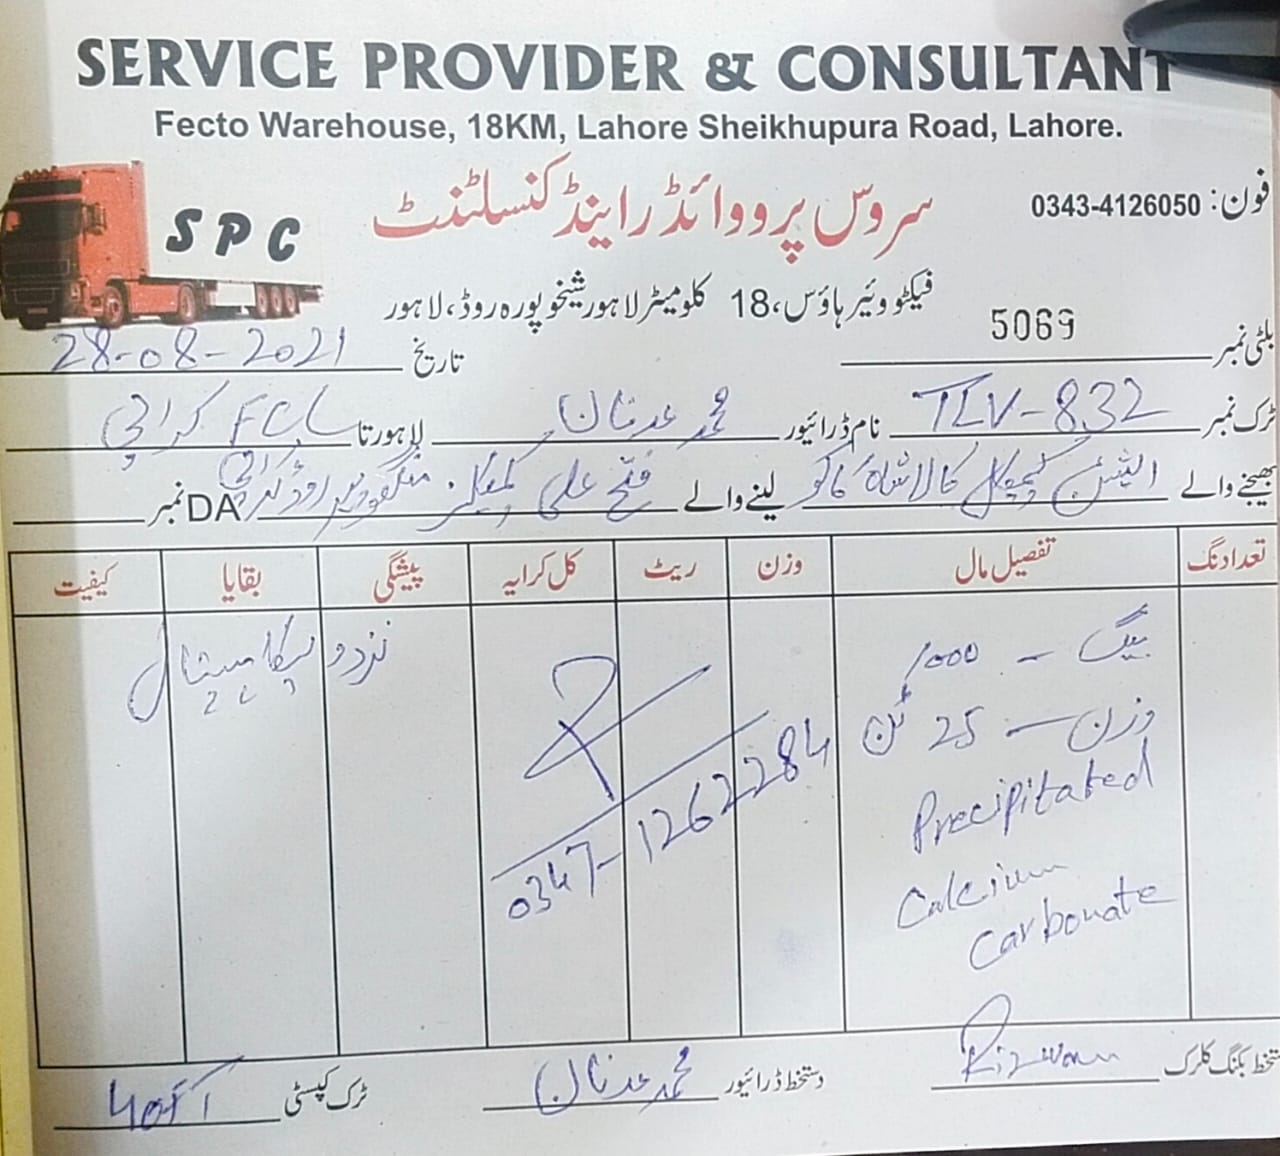 SERVICE PROVIDER & CONSULTANT
Fecto Warehouse, 18KM, Lahore Sheikhupura Road, Lahore.
SPC
سروس پرووائڈر اینڈ کنسلٹنٹ
فون: 0343-4126050
فیکٹو ویئر ہاؤس، 18 کلومیٹر لاہور شیخوپورہ روڈ، لاہور
بلٹی نمبر 5069
تاریخ 28-08-2021
ٹرک نمبر TLV-832 نام ڈرائیور محمد عدنان لاہور تا FCL کراچی
بھیجنے والے کیمیکل کالا شاہ کاکو لینے والے فتح علی کیمیکلز منگھوپیر روڈ کراچی DA نمبر
تعداد نگ تفصیل مال وزن ریٹ کل کرایہ پیشگی بقایا کیفیت
بیگ - 1000
وزن - 25 ٹن
Precipitated
Calcium
Carbonate
نزد ہسپتال
0347-1262284
دستخط بکنگ کلرک Rizwan
دستخط ڈرائیور محمد عدنان
ٹرک کپسٹی 40FT